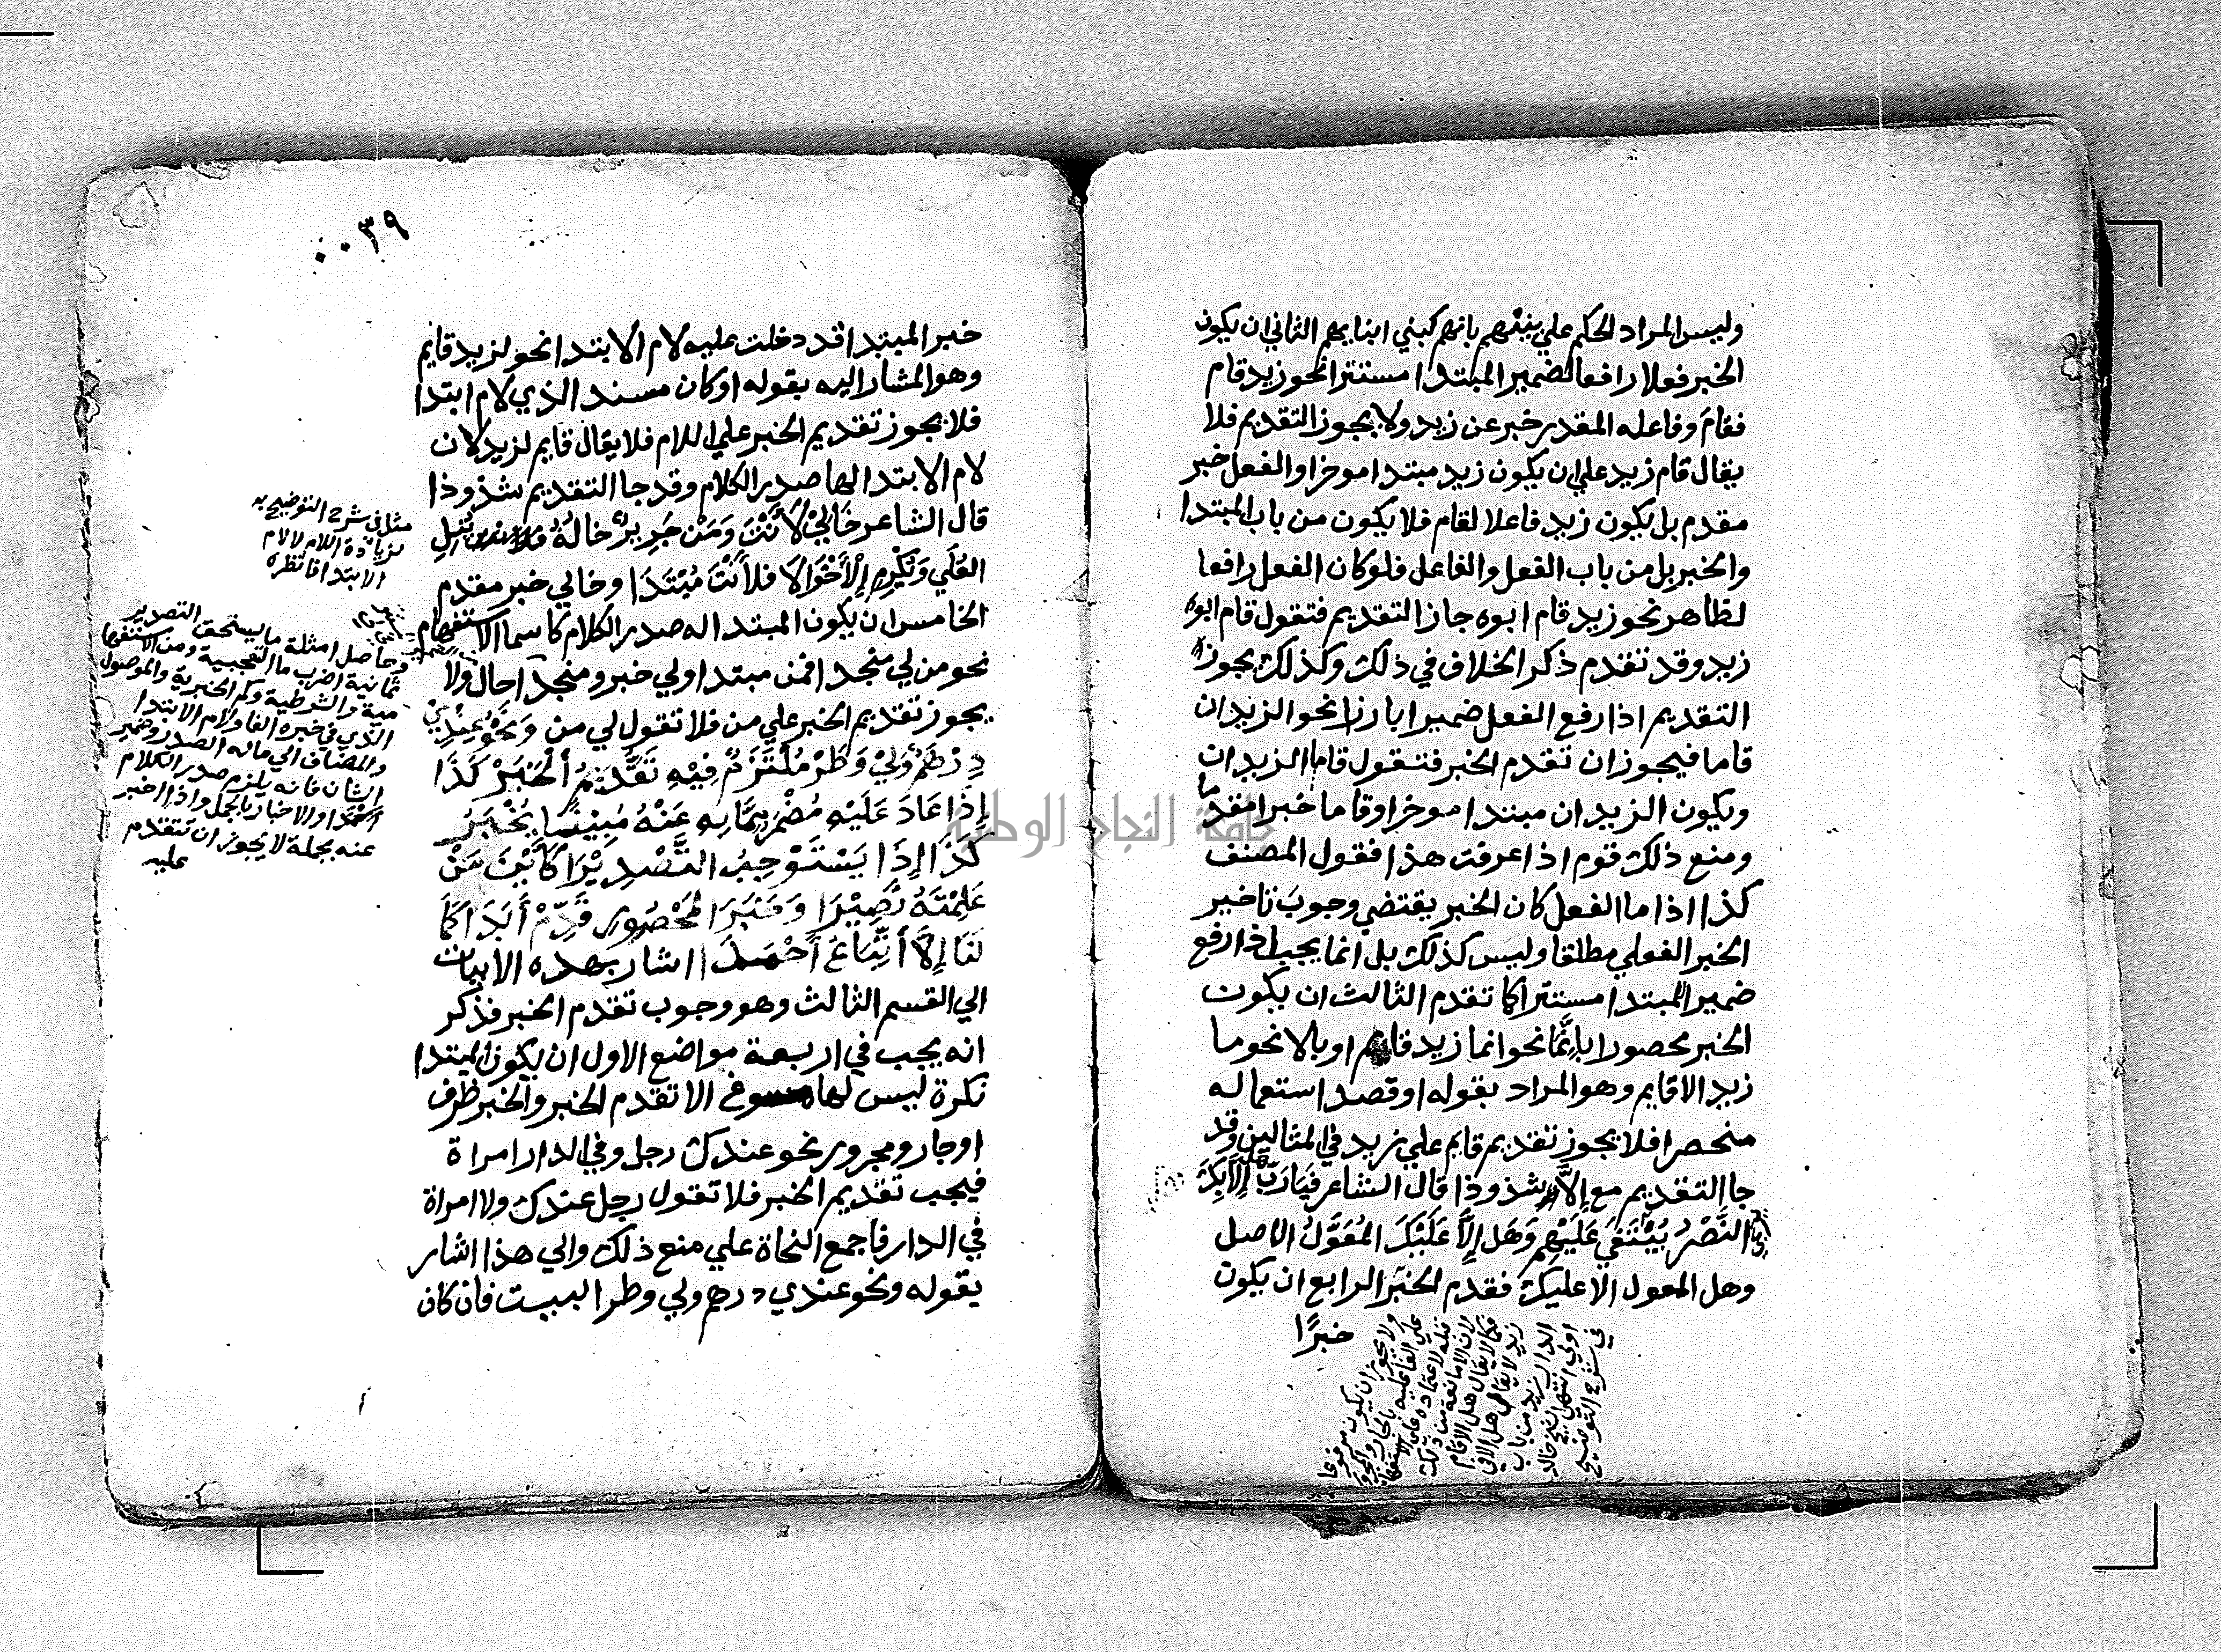 وليس المراد الحكم علي بنيهم بانهم كبني ابنايهم الثاني ان يكون
الخبر فعلا رافعا لضمير المبتدا مستترا نحو زيد قام
فقام وفاعله المقدر خبر عن زيد ولا يجوز التقديم فلا
يقال قام زيد علي ان يكون زيد مبتدا موخرا والفعل خبر
مقدم بل يكون زيد فاعلا لقام فلا يكون من باب المبتدا
والخبر بل من باب الفعل والفاعل فلو كان الفعل رافعا
لظاهر نحو زيد قام ابوه جاز التقديم فتقول قام ابوه
زيد وقد تقدم ذكر الخلاف في ذلك وكذلك يجوز
التقديم اذا رفع الفعل ضميرا بارزا نحو الزيدان
قاما فيجوز ان تقدم الخبر فتقول قاما الزيدان
ويكون الزيدان مبتدا موخرا وقاما خبرا مقدما
ومنع ذلك قوم اذا عرفت هذا فقول المصنف
كذا اذا ما الفعل كان الخبر يقتضي وجوب تاخير
الخبر الفعلي مطلقا وليس كذلك بل انما يجب اذا رفع
ضمير المبتدا مستترا كما تقدم الثالث ان يكون
الخبر محصورا بإنَّما نحو انما زيد قايم او بالا نحو ما
زيد الا قايم وهو المراد بقوله او قصد استعماله
منحصرا فلا يجوز تقديم قايم علي زيد في المثالين وقد
جا التقديم مع إلَّا شذوذا قال الشاعر فَيَا رَبِّ هل إلَّا بِكَ
النَّصْرُ يُبْتَغَي عَلَيْهِم وَهَل إلَّا عَلَيْكَ المُعَوَّلُ الاصل
وهل المعول الا عليك فقدم الخبر الرابع ان يكون
خبرًا
ولا يجوز ان يكون مرفوعا
علي الفاعلية بالجار والمجرور
قبله لاعتماده علي الاستفهام
لان الا مانعة من ذلك
فكما لا يقال هل الا قام
زيد لا يقال هل الا في
الدار زيد من باب
اولي انتهي الشيخ خالد
في شرح التوضيح
٠٠٣٩
خبر المبتدا قد دخلت عليه لام الابتدا نحو لزيد قايم
وهو المشار اليه بقوله او كان مسند الذي لام ابتدا
فلا يجوز تقديم الخبر علي اللام فلا يقال قايم لزيد لان
لام الابتدا لها صدر الكلام وقد جا التقديم شذوذا
قال الشاعر خَالِيْ لَأَنْتَ وَمَنْ جَرِيرٌ خالُهُ يَنَلِ
العَلَي وَيَكْرِمِ الأَخْوَالَا فلأَنْتَ مُبْتَدَا وخالي خبر مقدم
الخامس ان يكون المبتدا له صدر الكلام كاسما الاستفهام
نحو من لي منجدا فمن مبتدا ولي خبر ومنجدا حال ولا
يجوز تقديم الخبر علي من فلا تقول لي من وَنَحْوُ عِنْدِي
دِرْهَمٌ وَلِيْ وَطَرْ مُلْتَزَمٌ فِيْهِ تَقَدُّمُ الْخَبَرْ كَذَا
إِذَا عَادَ عَلَيْهِ مُضْمَرُ مِمَّا بِهِ عَنْهُ مُبِيْنًا يُخْبَرُ
كَذَا إِذَا يَسْتَوْجِبُ التَّصْدِيْرَا كَأَيْنَ مَنْ
عَلِمْتَهُ نَصِيْرَا وَخَبَرَ المَحْصُورِ قَدِّمْ أَبَدَا كَمَا
لَنَا إِلَّا أتِّبَاعُ أَحْمَدَا اشار بهذه الابيات
الي القسم الثالث وهو وجوب تقدم الخبر فذكر
انه يجب في اربعة مواضع الاول ان يكون المبتدا
نكرة ليس لها مسوغ الا تقدم الخبر والخبر ظرف
او جار ومجرور نحو عندك رجل وفي الدار امراة
فيجب تقديم الخبر فلا تقول رجل عندك ولا امراة
في الدار فاجمع النحاة علي منع ذلك والي هذا اشار
بقوله ونحو عندي درهم ولي وطر البيت فان كان
مثل في شرح التوضيح به
لزيادة اللام لا لام
الابتدا فانظره
وحاصل امثلة ما يستحق التصدير
ثمانية اضرب ما التعجبية ومن الاستفها
مية والشرطية وكم الخبرية والموصول
الذي في خبره الفا ولام الابتدا
والمضاف الي ماله الصدر وضمير
الشان فانه يلزم صدر الكلام
ابتدا والاخبار بالجمل واذا اخبر
عنه بجملة لا يجوز ان تتقدم
عليه
جامعة النجاح الوطنية